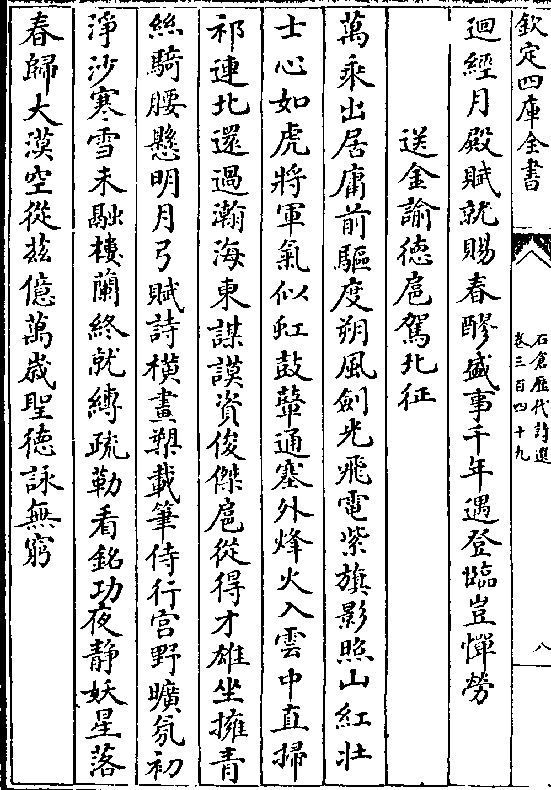 欽定四庫全書
石倉歷代詩選
卷三百四十九
八
迴經月殿賦就賜春醪盛事千年遇登臨豈憚勞
送金諭德扈駕北征
萬乘出居庸前驅度朔風劍光飛電紫旗影照山紅壯
士心如虎將軍氣似虹鼓鼙通塞外烽火入雲中直掃
祁連北還過瀚海東謀謨資俊傑扈從得才雄坐擁青
絲騎腰懸明月弓賦詩橫畫槊載筆侍行宫野曠氛初
淨沙寒雪未融樓蘭終就縛疏勒看銘功夜靜妖星落
春歸大漠空從兹億萬歲聖德詠無窮